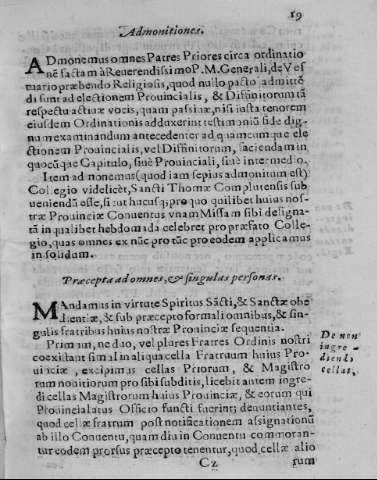 19
Admonitiones.
ADmonemus omnes Patres Priores circa ordinatio
nē factam à Reuerendissimo P. M. Generali, de Vest
tuario præbendo Religiosis, quod nullo pacto admittē
di sunt ad electionem Prouincialis, & Diffinitorum tā
respectu actiuæ vocis, quam passiuæ, nisi iuxta tenorem
eiusdem Ordinationis adduxerint testimoniū side dig-
num examinandum antecedenter ad quamcumque ele
ctionem Prouincialis, vel Diffinitorum, faciendam in
quocūque Capitulo, siuè Prouinciali, siuè intermedio.
Item admonemus (quod iam sepius admonitum est)
Collegio videlicèt, Sancti Thomæ Complutensis sub
ueniendū esse, sicut hucusq; pro quo quilibet huius nos-
træ Prouinciæ Conuentus vnam Missam sibi designa-
tā in qualibet hebdomada celebret pro præfato Colle-
gio, quas omnes ex nūc pro tūc pro eodem applicamus
in solidum.
Præcepta ad omnes, & singulas personas.
MAndamus in virtute Spiritus Sācti, & Sanctæ obe
dientiæ, & sub præcepto formali omnibus, & sin-
gulis fratribus huius nostræ Prouinciæ sequentia.
Primum, ne duo, vel plures Fratres Ordinis nostri
coexistant simul in aliqua cella Fratruum huius Prou
inciæ, excipimus cellas Priorum, & Magistro
rum nouitiorum pro sibi subditis, licebit autem ingre-
di cellas Magistrorum huius Prouinciæ, & eorum qui
Prouincialatus Officio functi fuerint; denuntiantes,
quod cellæ fratrum post notificationem assignationū
ab illo Conuentu, quam diu in Conuentu commoran-
tur eodem prorsus præcepto tenentur, quod cellæ alio
De non
ingre-
diendi
cellas,
C2
rum